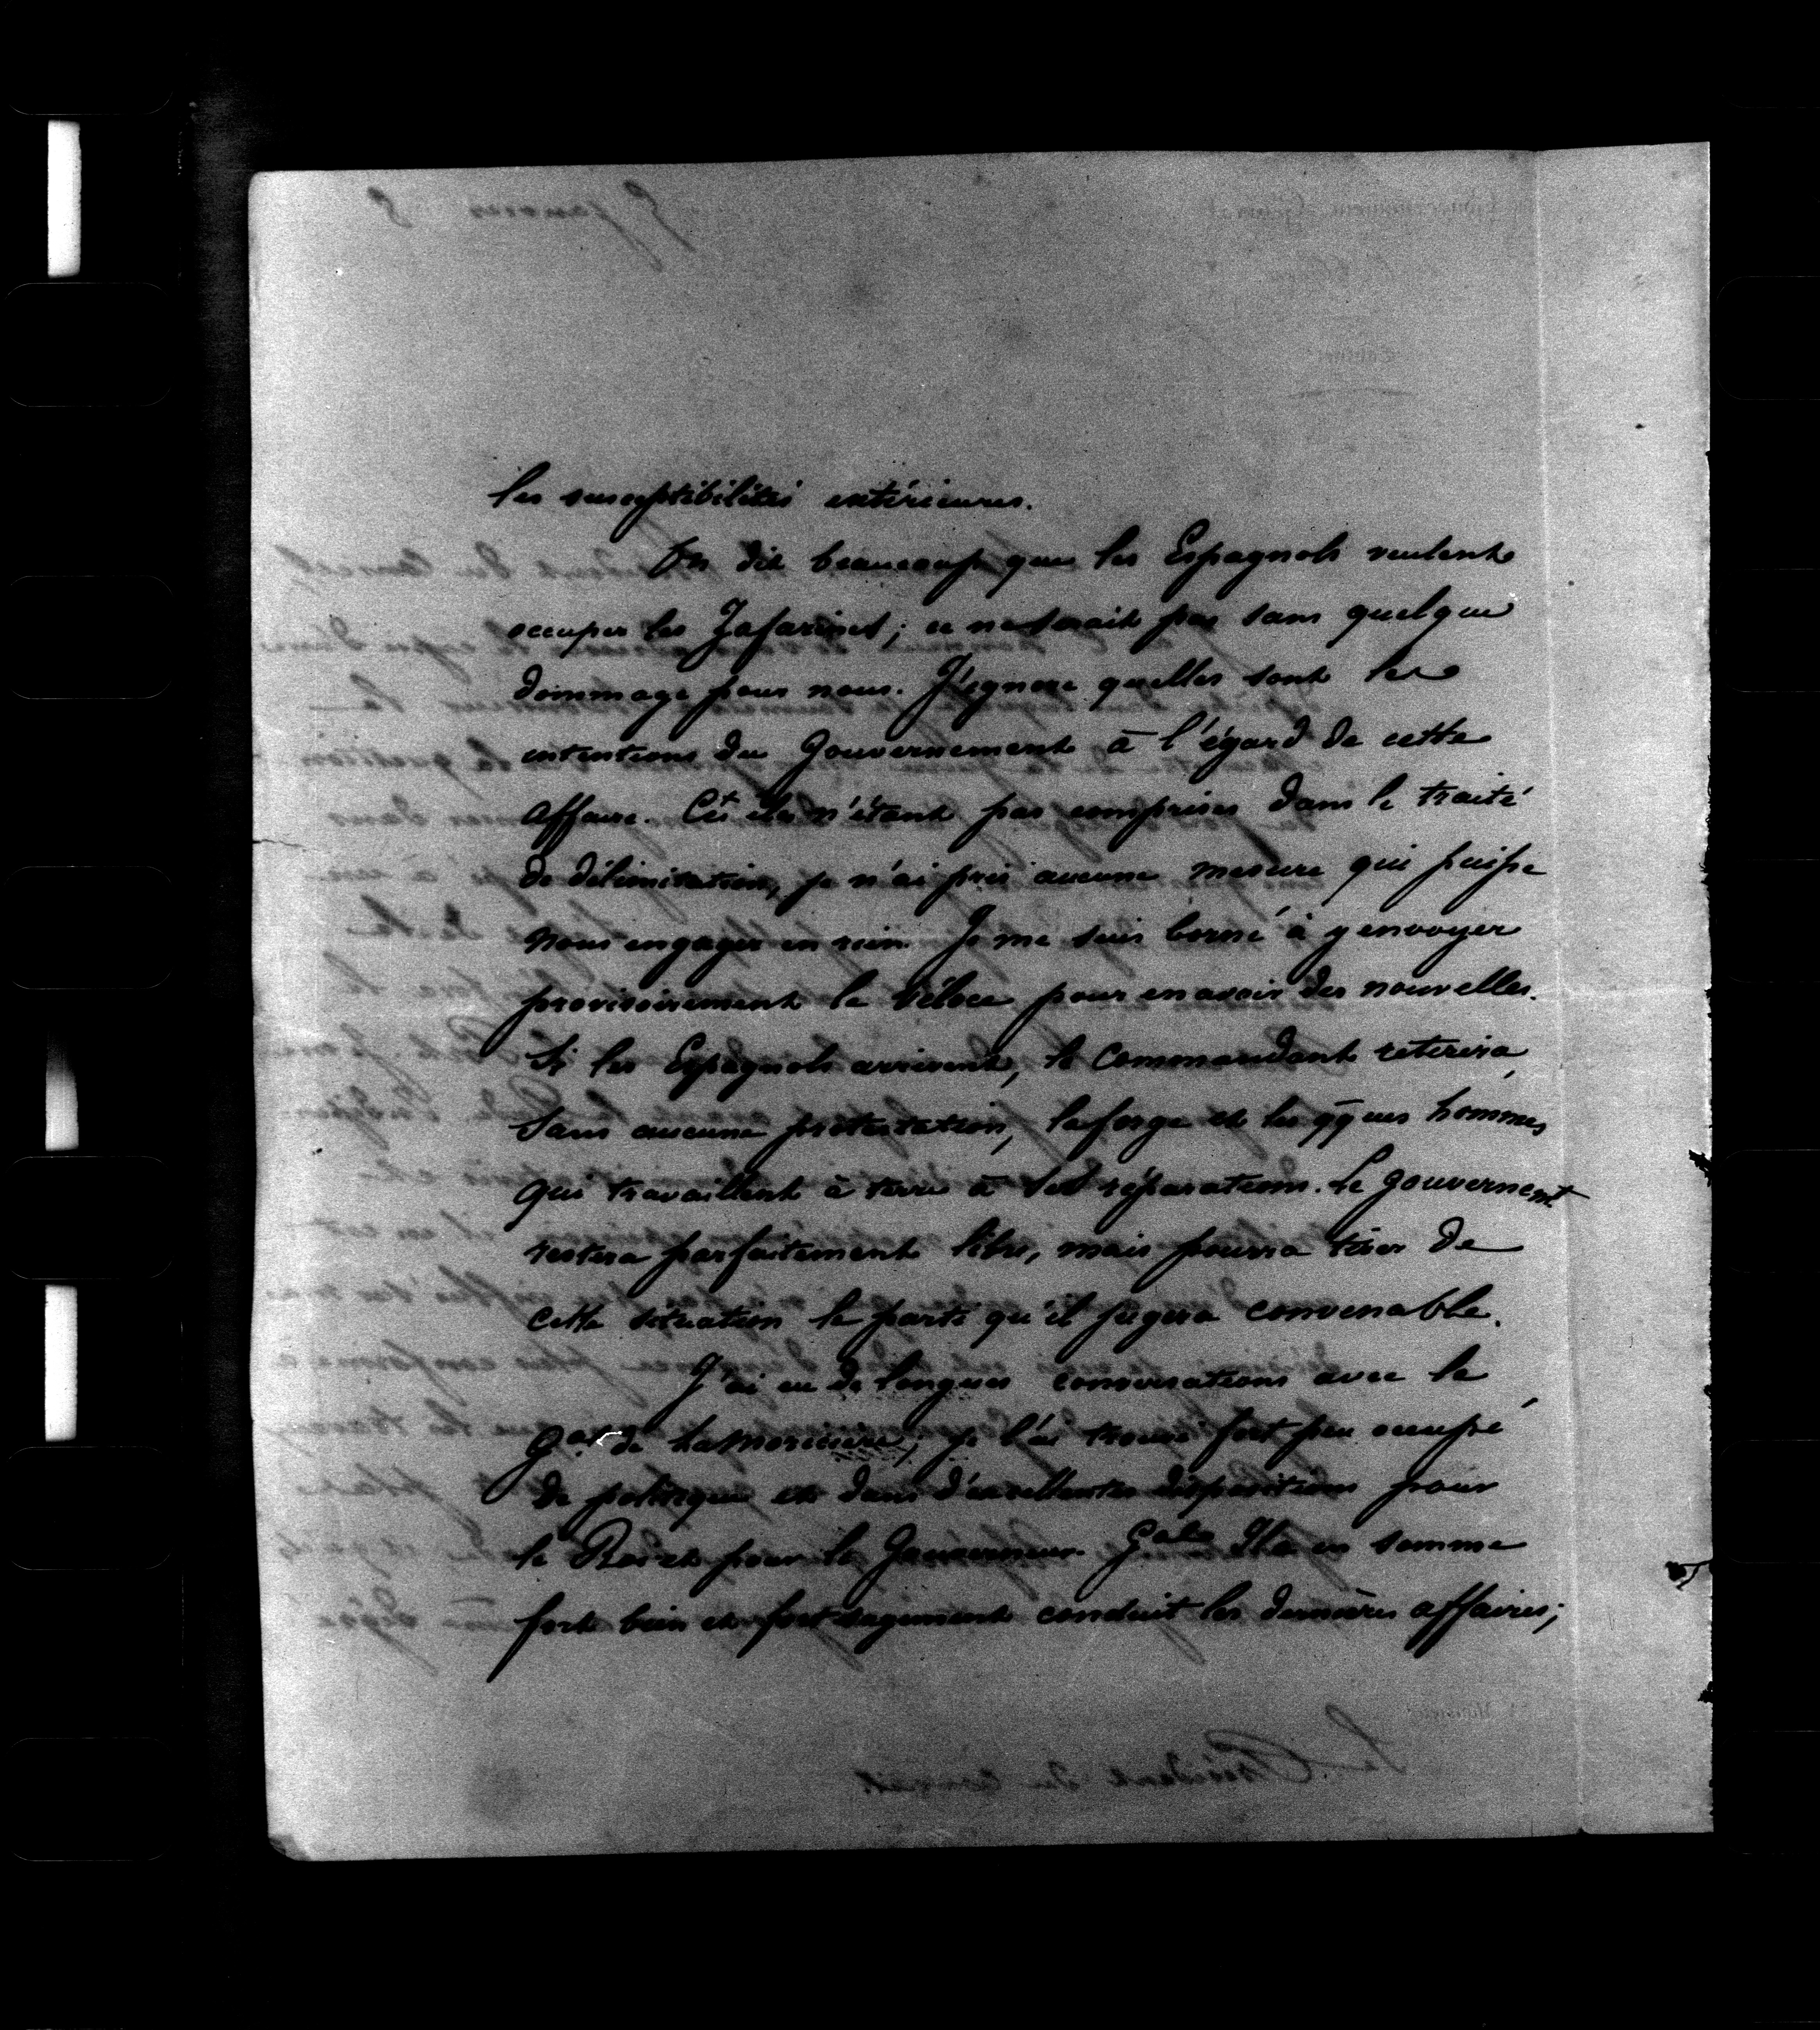 les susceptibilités extérieures.
On dit beaucoup que les Espagnols veulent
occuper les Zafarines; ce ne serait pas sans quelque
dommage pour nous. J'ignore quelles sont les
intentions du Gouvernement à l'égard de cette
affaire. Ces iles n'étant pas comprises dans le traité
de délimitation, je n'ai pris aucune mesure qui puisse
nous engager en rien. Je me suis borné à y envoyer
provisoirement le Véloce pour en avoir des nouvelles.
Si les Espagnols arrivent, le Commandant retirera,
sans aucune protestation, la forge et les qques hommes
qui travaillent à terre à ses réparations. Le gouvernemt
restera parfaitement libre, mais pourra tirer de
cette situation le parti qu'il jugera convenable.
J'ai eu de longues conversations avec le
Gal de Lamoricière; je l'ai trouvé fort peu occupé
de politique et dans d'excellentes dispositions pour
le Roi et pour le Gouverneur Gal. Il a en somme
fort bien et fort sagement conduit les dernières affaires;